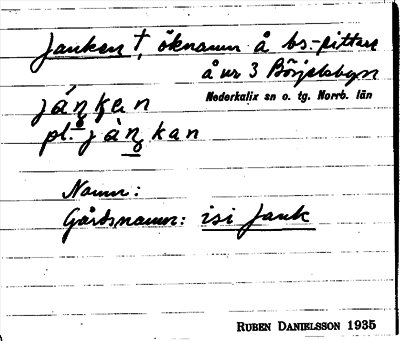 Janken †, öknamn å bs-sittare
å nr 3 Börjelsbyn
Nederkalix sn o. tg. Norrb. län
jáŋkan
pl. jàŋkan
Namn:
Gårdsnamn: isi Jank
RUBEN DANIELSSON 1935